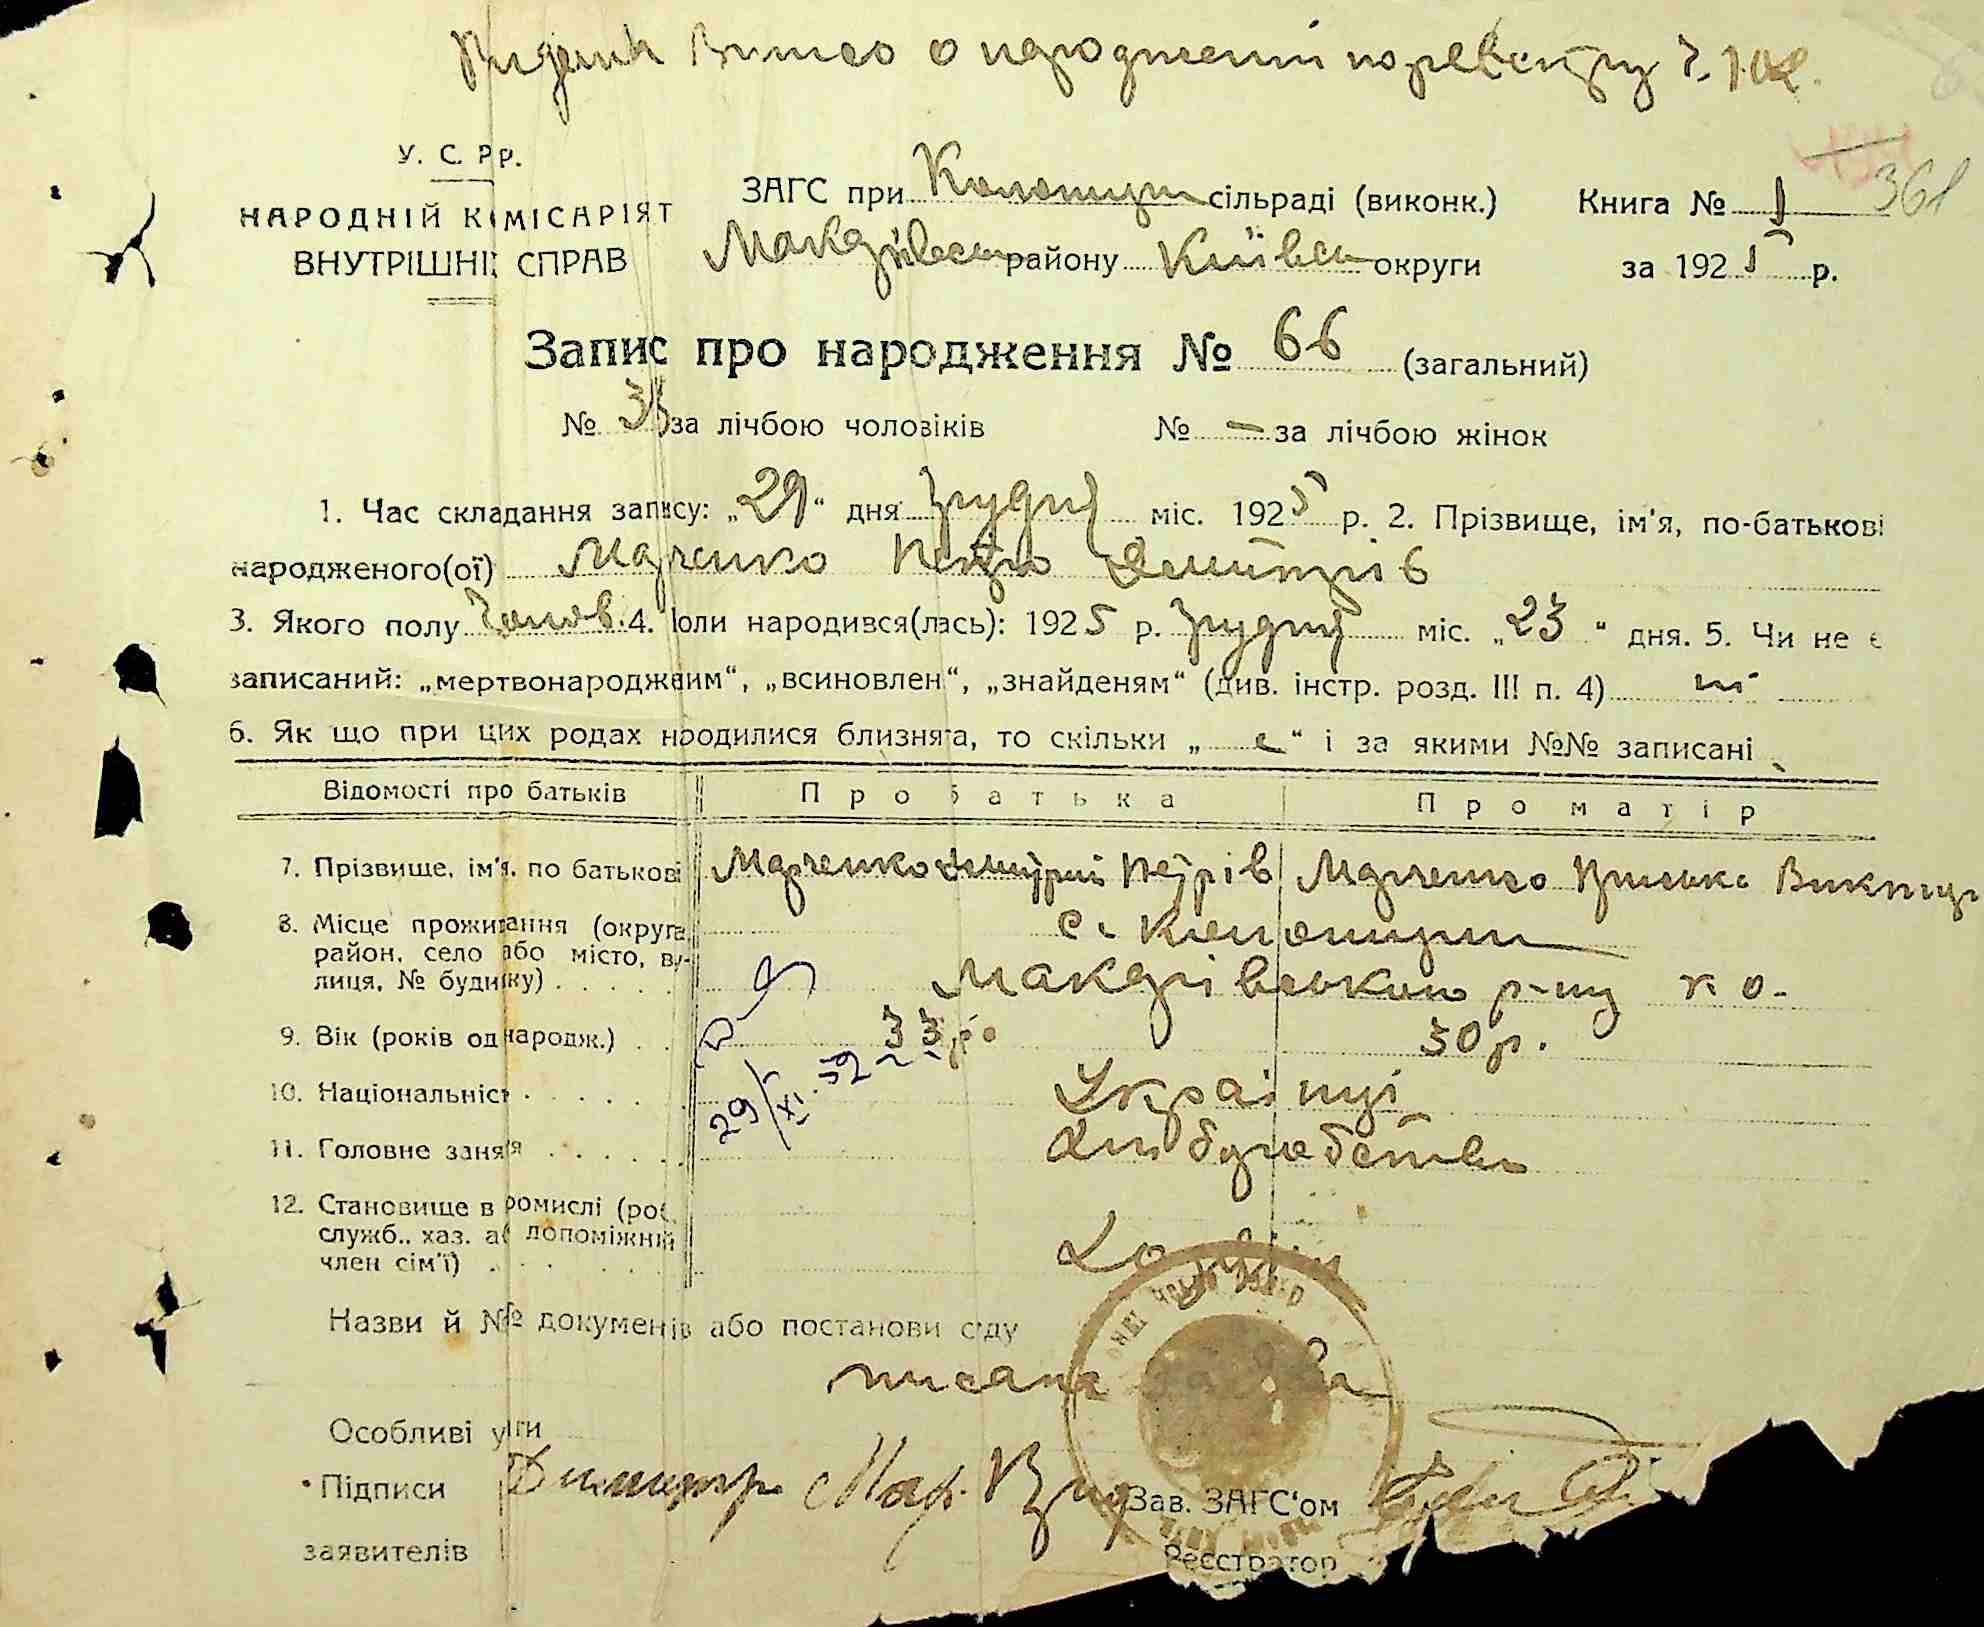 о народженні по реєстру
У. С. Р Р.
361
ЗАГС при сільраді (виконк.) Книга № 1
НАРОДНІЙ КОМІСАРІЯТ
Макарівськ району Київськ округи за 1925 р.
ВНУТРІШНІХ СПРАВ
Запис про народження № 66 (загальний)
№ за лічбою чоловіків № — за лічбою жінок
1. Час складання запису: „29“ дня грудня міс. 1925 р. 2. Прізвище, ім'я, по-батькові
народженого(ої) Марченко Петро Дмитрів
3. Якого полу Чолов. 4. Коли народився(лась): 1925 р. грудня міс. „23“ дня. 5. Чи не є
записаний: „мертвонародженим“, „всиновлен“, „знайденям“ (див. інстр. розд. III п. 4) ні
6. Як що при цих родах народилися близнята, то скільки „ “ і за якими №№ записані
Відомості про батьків Про батька Про матір
7. Прізвище, ім'я, по батькові Марченко Дмитрій Петрів Марченко
8. Місце проживання (округа, район, село або місто, ву-
лиця, № будинку) с.
Макарівського р-ну К. О.
9. Вік (років од народж.) 33 р. 30 р.
29/XI. 52
10. Національність Українці
11. Головне заняття Хліборобство
12. Становище в промислі (роб.,
служб., хаз. або допоміжній
член сім'ї)
Назви й №№ документів або постанови суду
Особливі уваги
Підписи Зав. ЗАГС'ом
заявителів Реєстратор